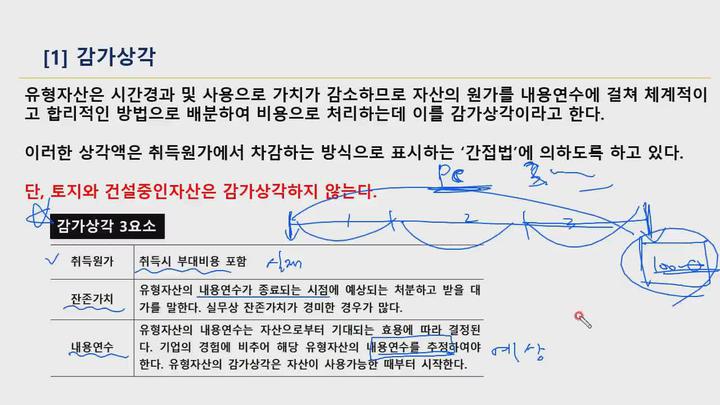 [1] 감가상각
유형자산은 시간경과 및 사용으로 가치가 감소하므로 자산의 원가를 내용연수에 걸쳐 체계적이
고 합리적인 방법으로 배분하여 비용으로 처리하는데 이를 감가상각이라고 한다.
이러한 상각액은 취득원가에서 차감하는 방식으로 표시하는 ‘간접법’에 의하도록 하고 있다.
PC
단, 토지와 건설중인자산은 감가상각하지 않는다.
1 2 3
감가상각 3요소
취득원가 취득시 부대비용 포함 실제
잔존가치
유형자산의 내용연수가 종료되는 시점에 예상되는 처분하고 받을 대
가를 말한다. 실무상 잔존가치가 경미한 경우가 많다.
내용연수
유형자산의 내용연수는 자산으로부터 기대되는 효용에 따라 결정된
다. 기업의 경험에 비추어 해당 유형자산의 내용연수를 추정하여야
한다. 유형자산의 감가상각은 자산이 사용가능한 때부터 시작한다.
예상